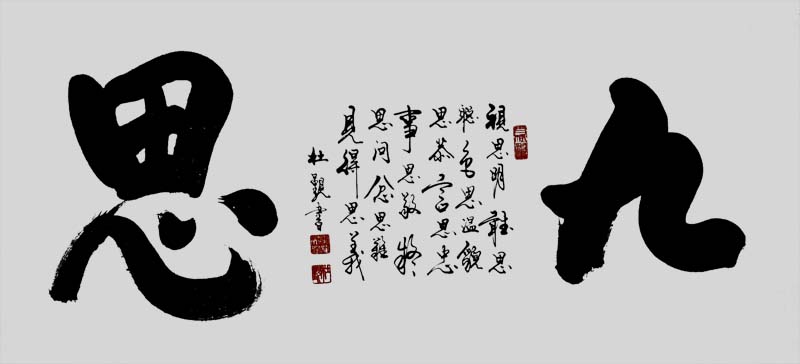 九思
視思明聽思
聰色思溫貌
思恭言思忠
事思敬疑
思問忿思難
見得思義
杜 書